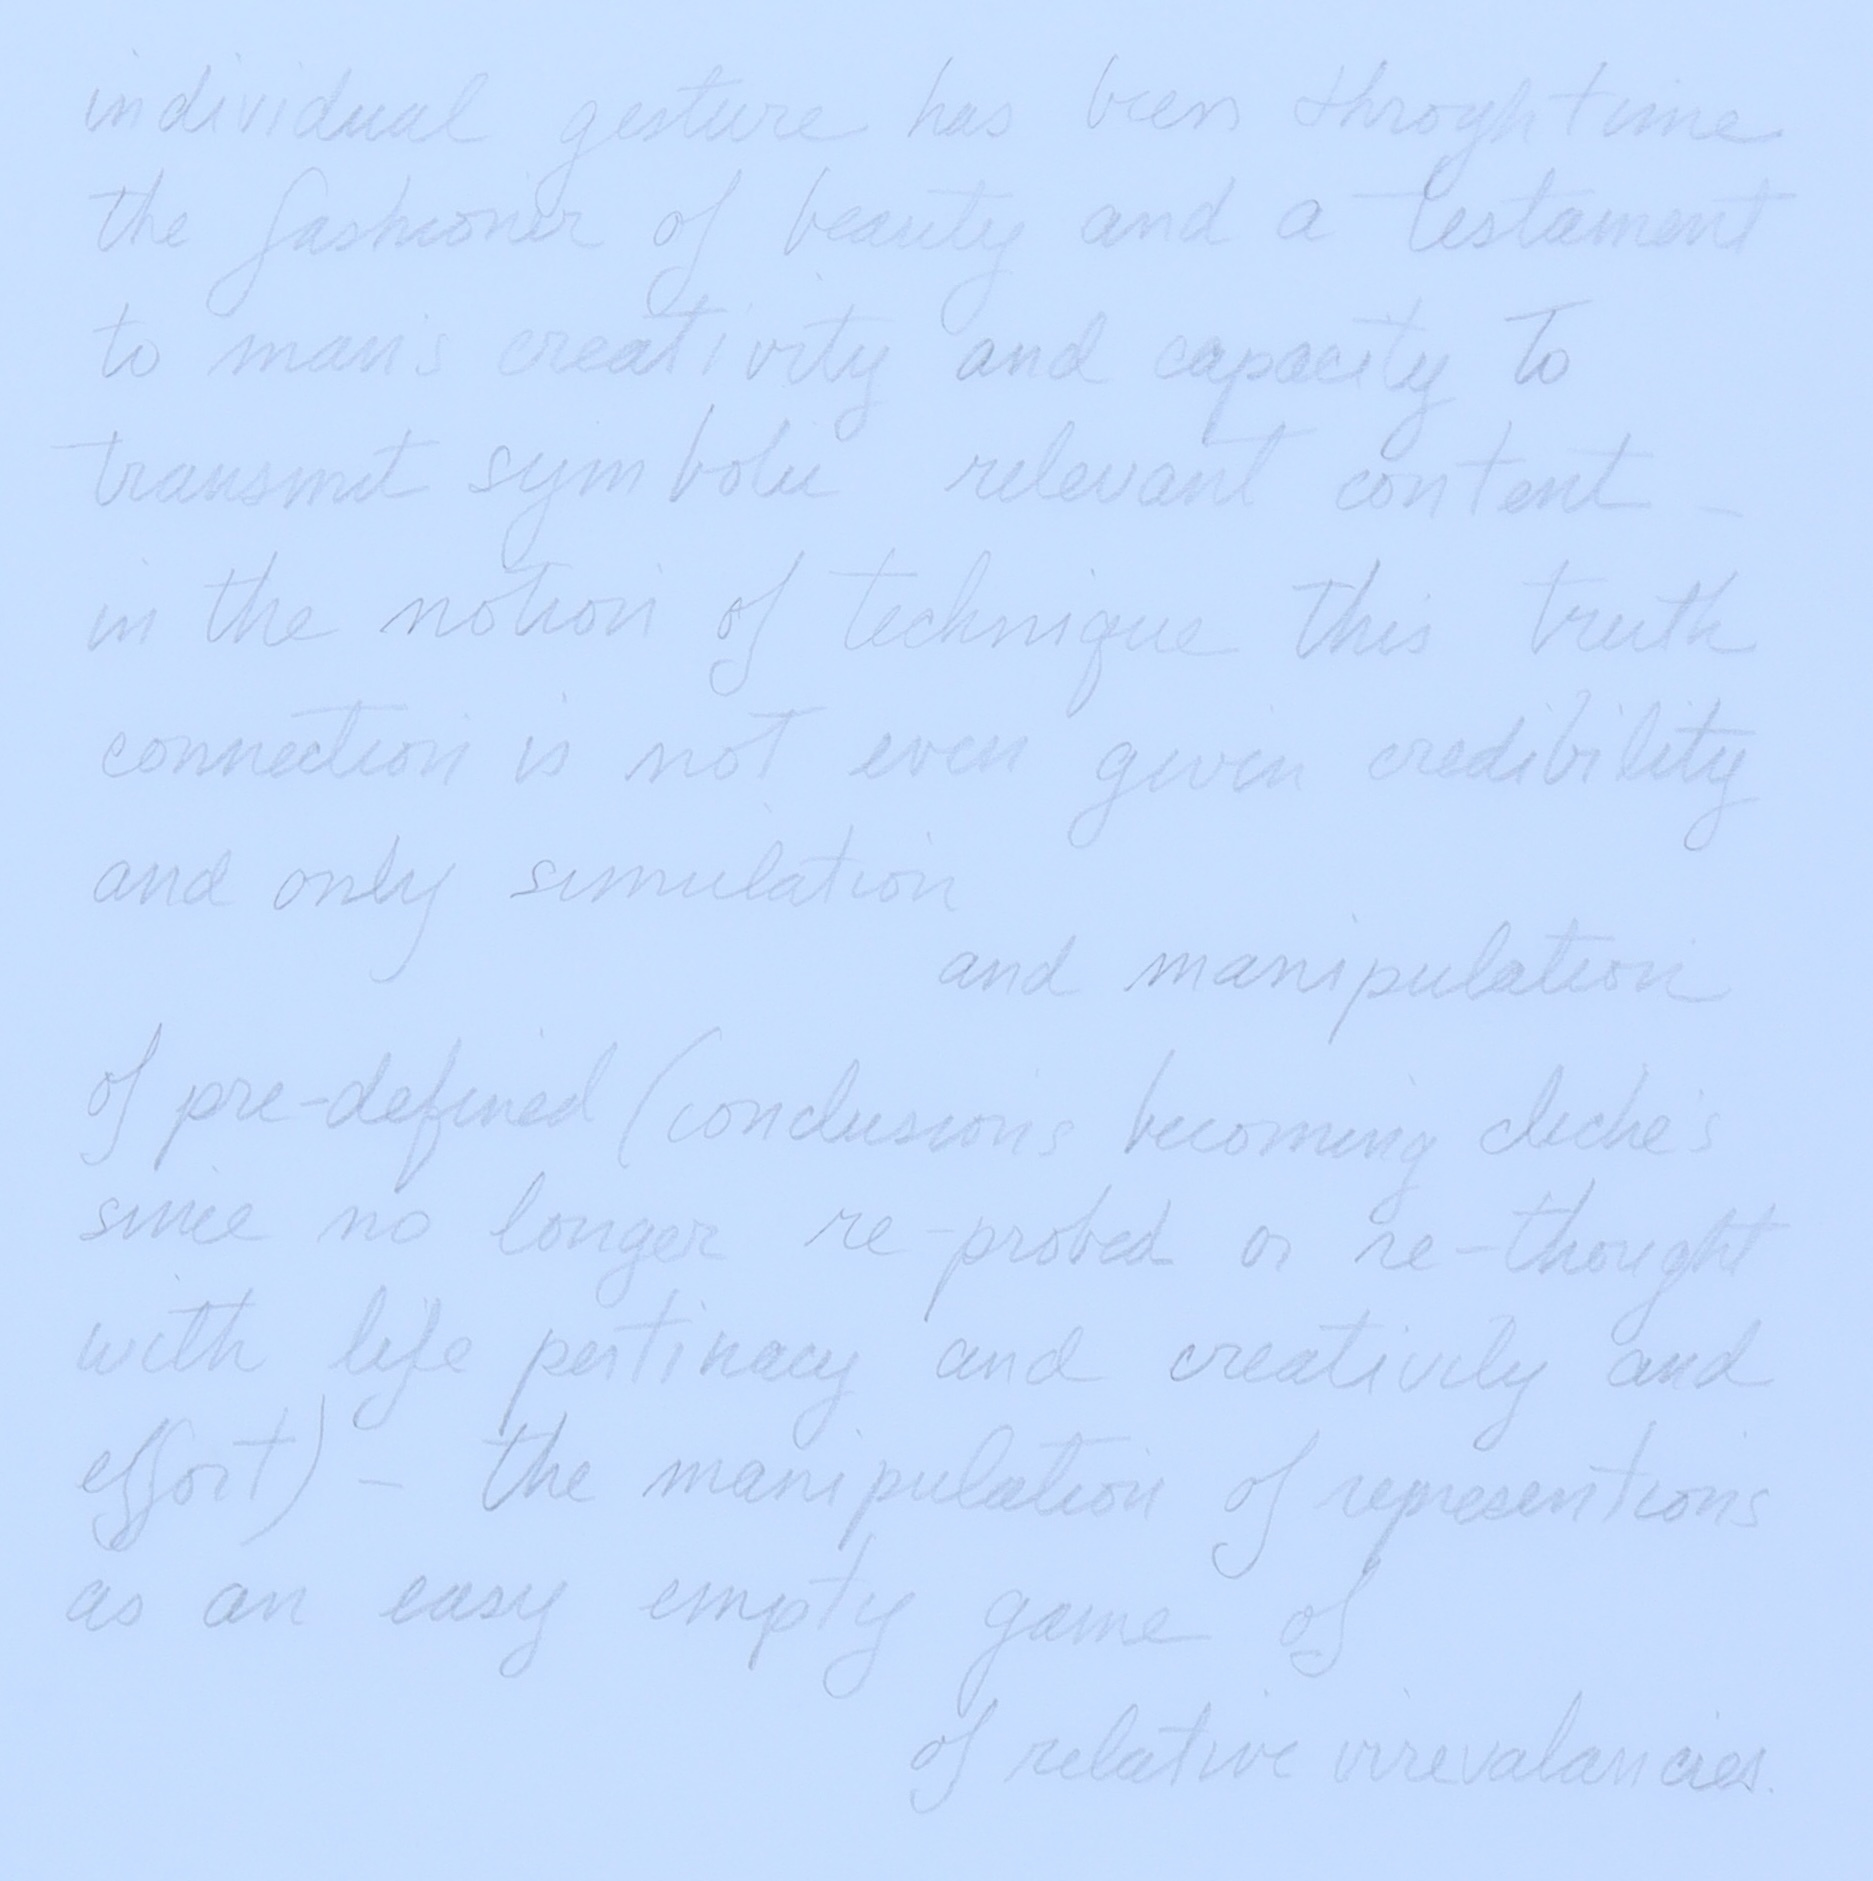 individual gesture has been throgh time
the fashioner of beauty and a testament
to man's creativity and capacity to
transmit symbolic relevant content -
in the notion of technique this truth
connection is not even given credibility
and only simulation
and manipulation
of pre-defined (conclusions becoming cliche's
since no longer re-probed or re-thought
with life pertinacy and creativity and
effort) - the manipulation of representions
as an easy empty game of
of relative irrevalancies.